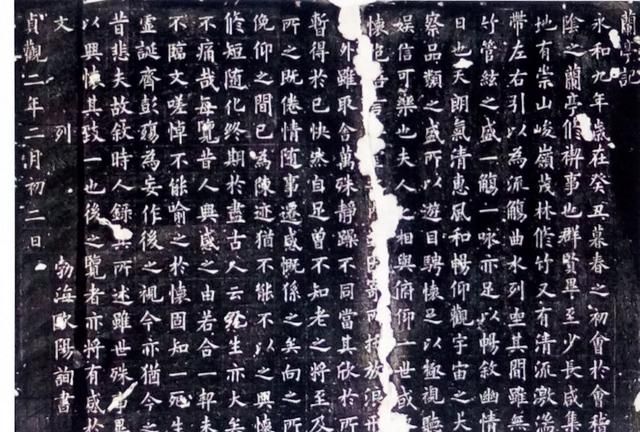 蘭亭記
永和九年歲在癸丑暮春之初會於會稽
陰之蘭亭修禊事也群賢畢至少長咸集
地有崇山峻嶺茂林修竹又有清流激湍
帶左右引以為流觴曲水列坐其間雖無
竹管絃之盛一觴一咏亦足以暢敘幽情
日也天朗氣清惠風和暢仰觀宇宙之大
察品類之盛所以遊目騁懷足以極視聽
娛信可樂也夫人之相與俯仰一世或
懷 言 寄所託放浪形
外雖取舍萬殊靜躁不同當其欣於所
暫得於己快然自足曾不知老之將至及
所之既倦情隨事遷感慨係之矣向之所
俛仰之間已為陳迹猶不能不以之興懷
修短隨化終期於盡古人云死生亦大矣
不痛哉每覽昔人興感之由若合一契未
不臨文嗟悼不能喻之於懷固知一死生
虛誕齊彭殤為妄作後之視今亦猶今之
昔悲夫故敘時人錄其所述雖世殊事異
以興懷其致一也後之覽者亦將有感於
文 列 勃海歐陽詢書
貞觀二年二月初二日